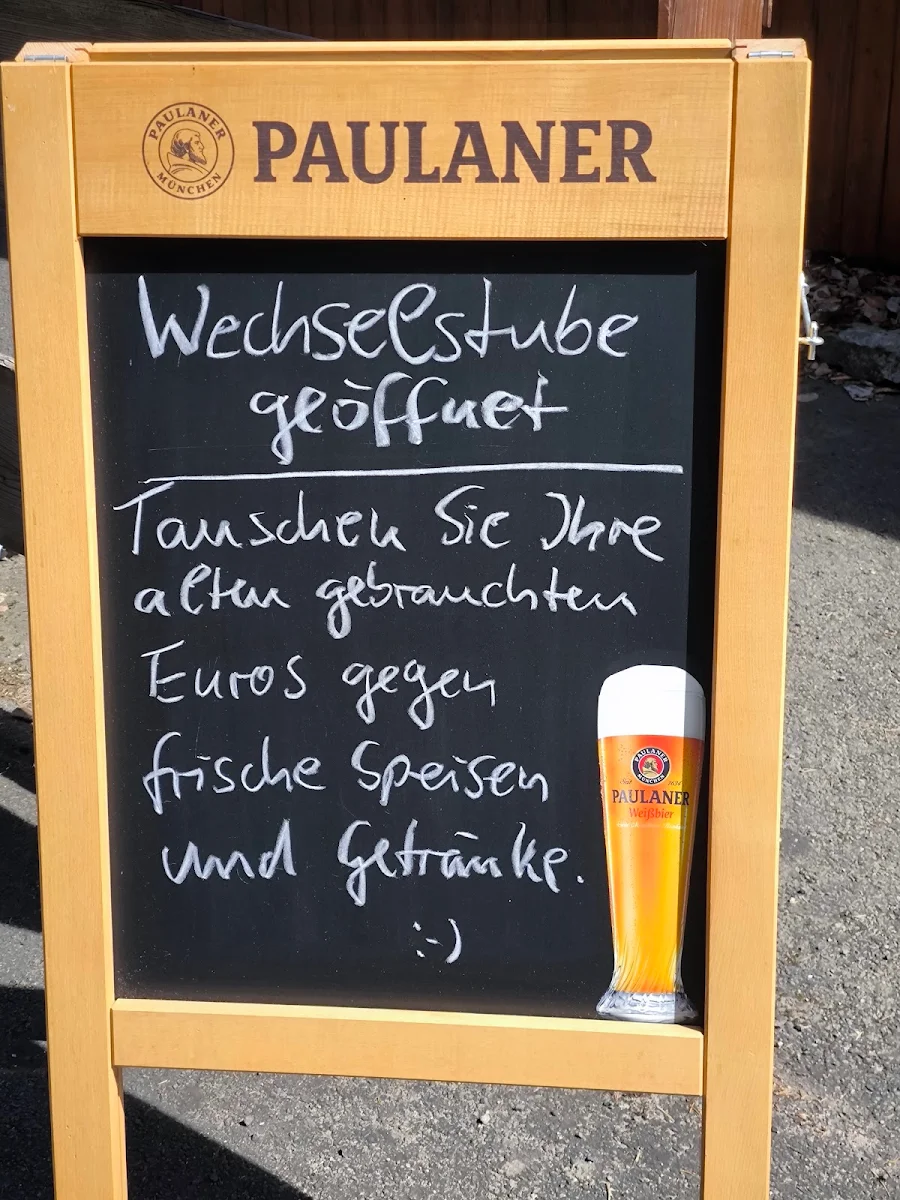 PAULANER
MÜNCHEN
PAULANER
Wechselstube
geöffnet
Tauschen Sie Ihre
alten gebrauchten
Euros gegen
frische Speisen
und Getränke.
:-)
PAULANER
MÜNCHEN
PAULANER
Weißbier